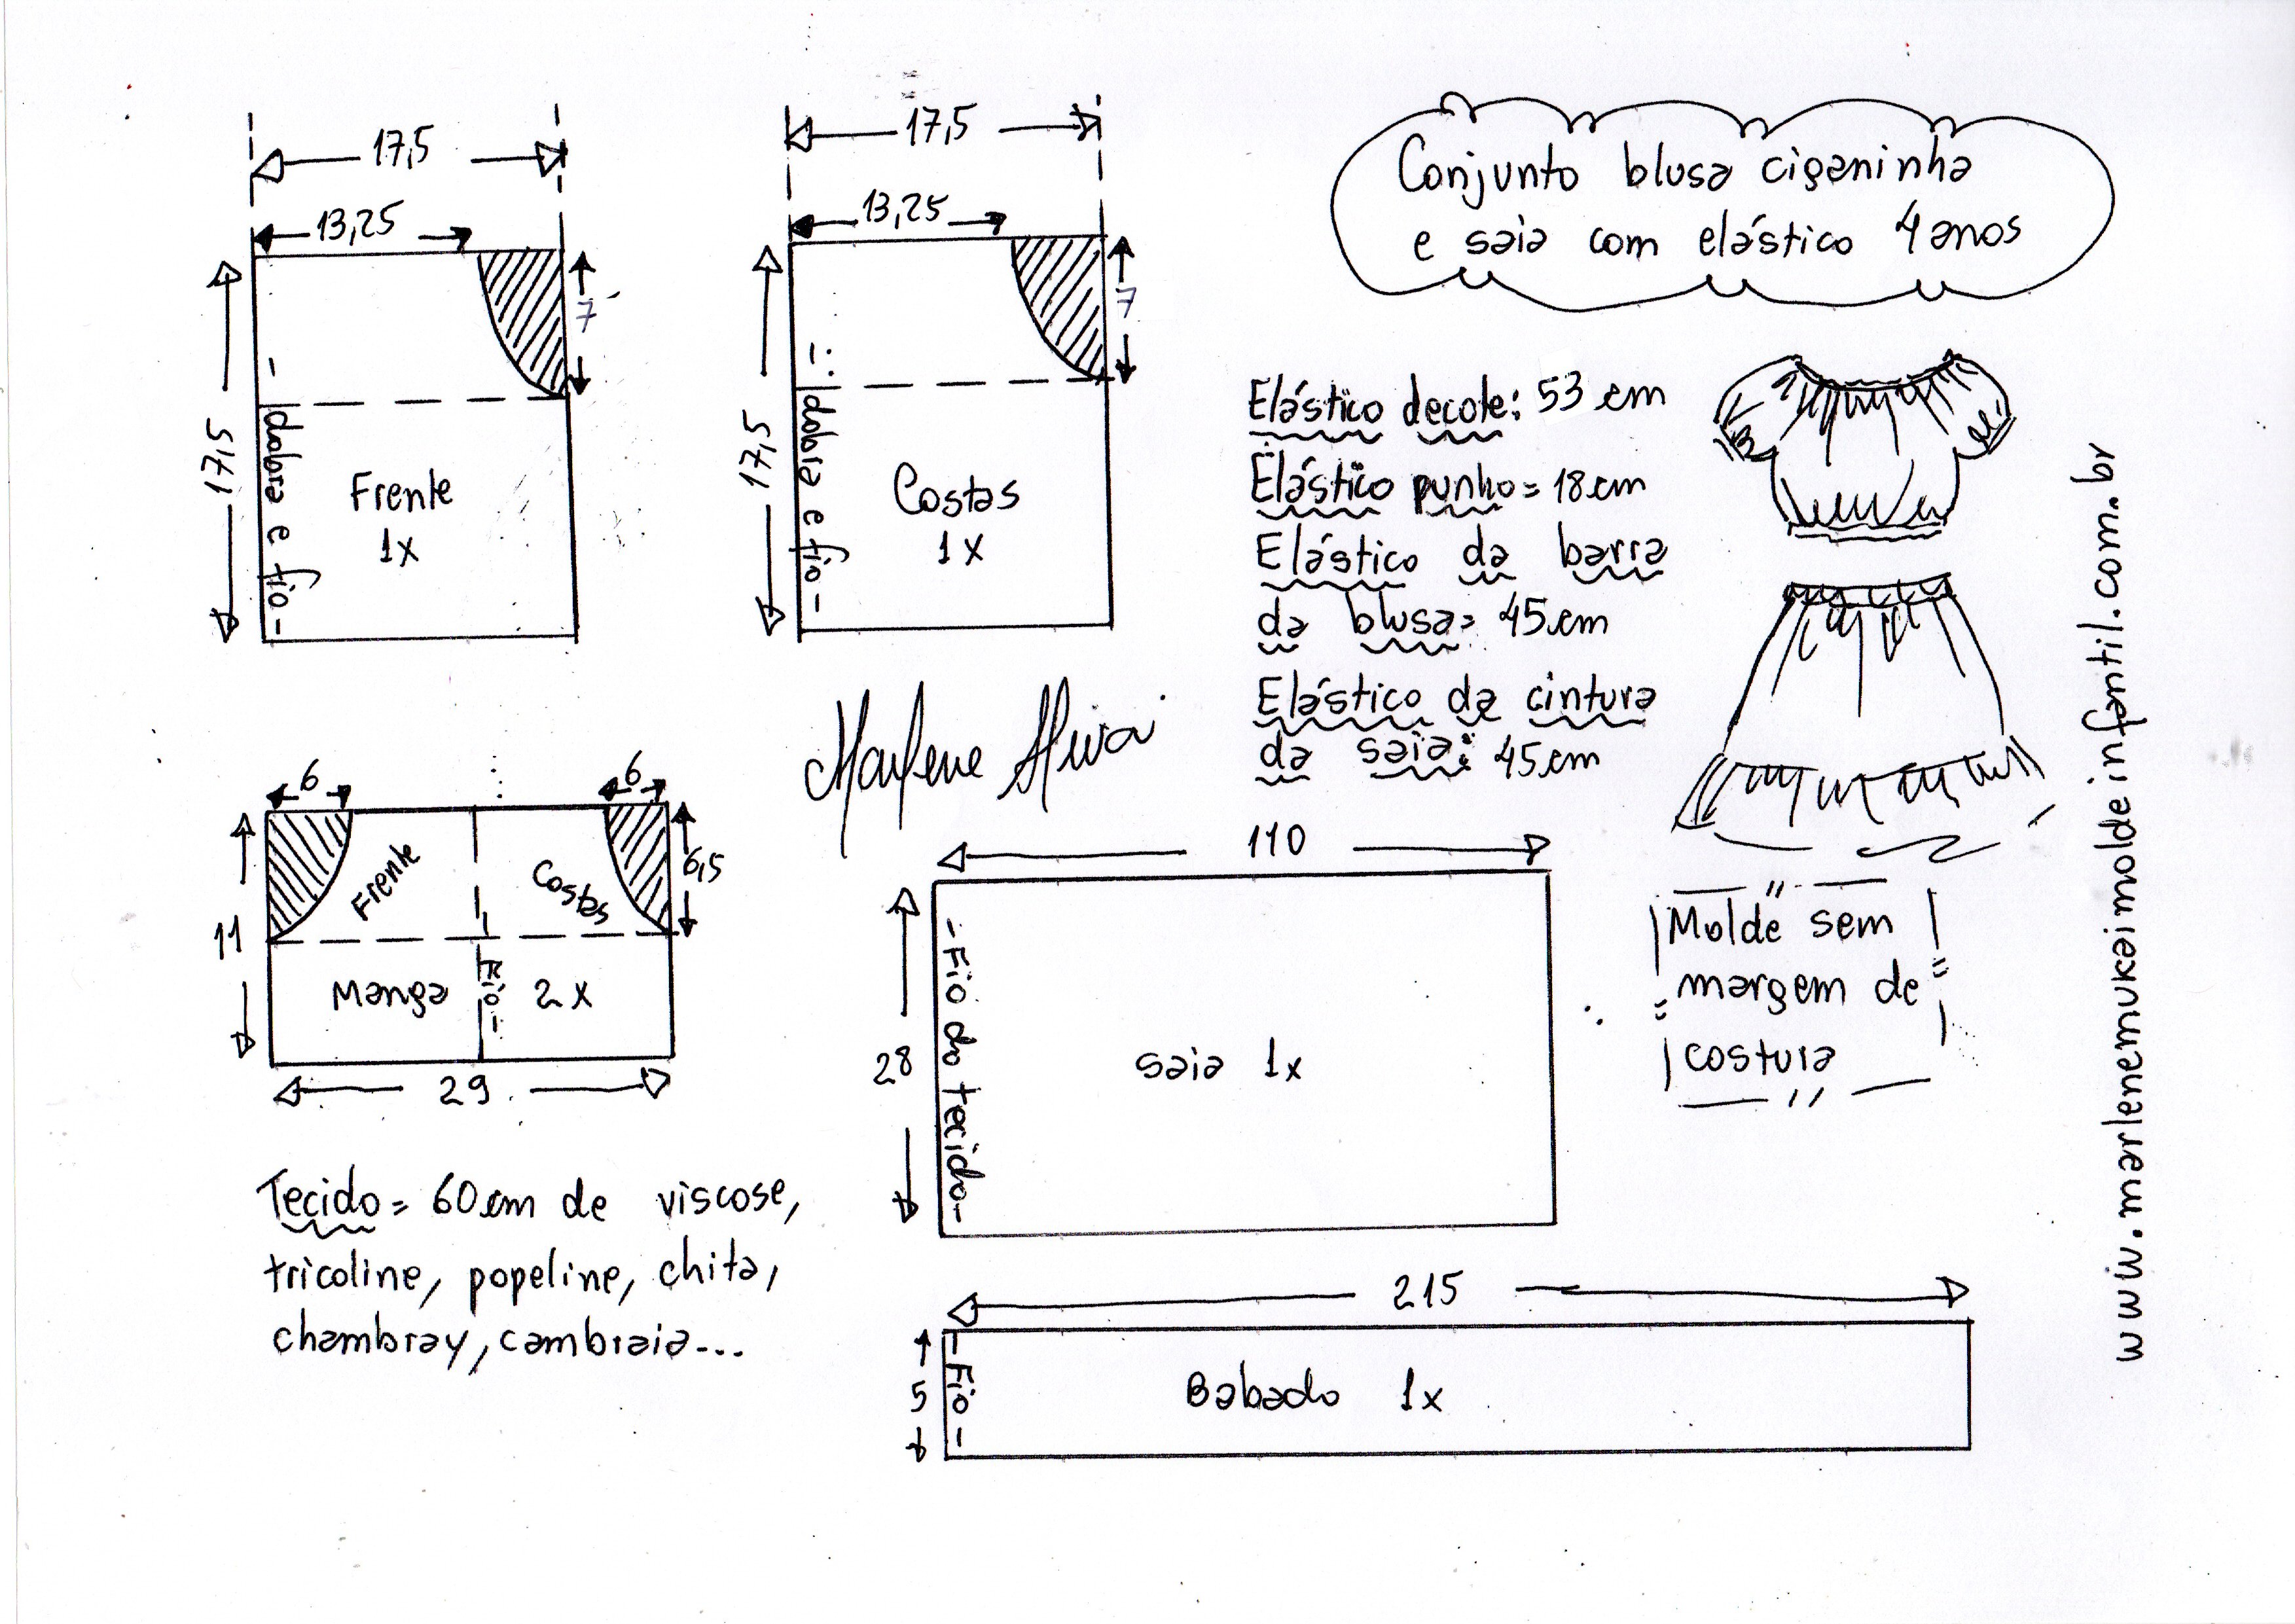 Conjunto blusa ciganinha
e saia com elástico 4 anos
17,5
13,25
7
17,5
dobra e fio
Frente
1x
17,5
13,25
7
17,5
dobra e fio
Costas
1x
Elástico decote: 53 cm
Elástico punho = 18 cm
Elástico da barra
da blusa = 45 cm
Elástico da cintura
da saia: 45 cm
6
6
6,5
11
Frente
Costas
Manga
Fio
2x
29
110
28
Fio do tecido
saia 1x
Molde sem
margem de
costura
Tecido = 60 cm de viscose,
tricoline, popeline, chita,
chambray, cambraia...
215
5
Fio
Babado 1x
www.marlenemukaimoldeinfantil.com.br